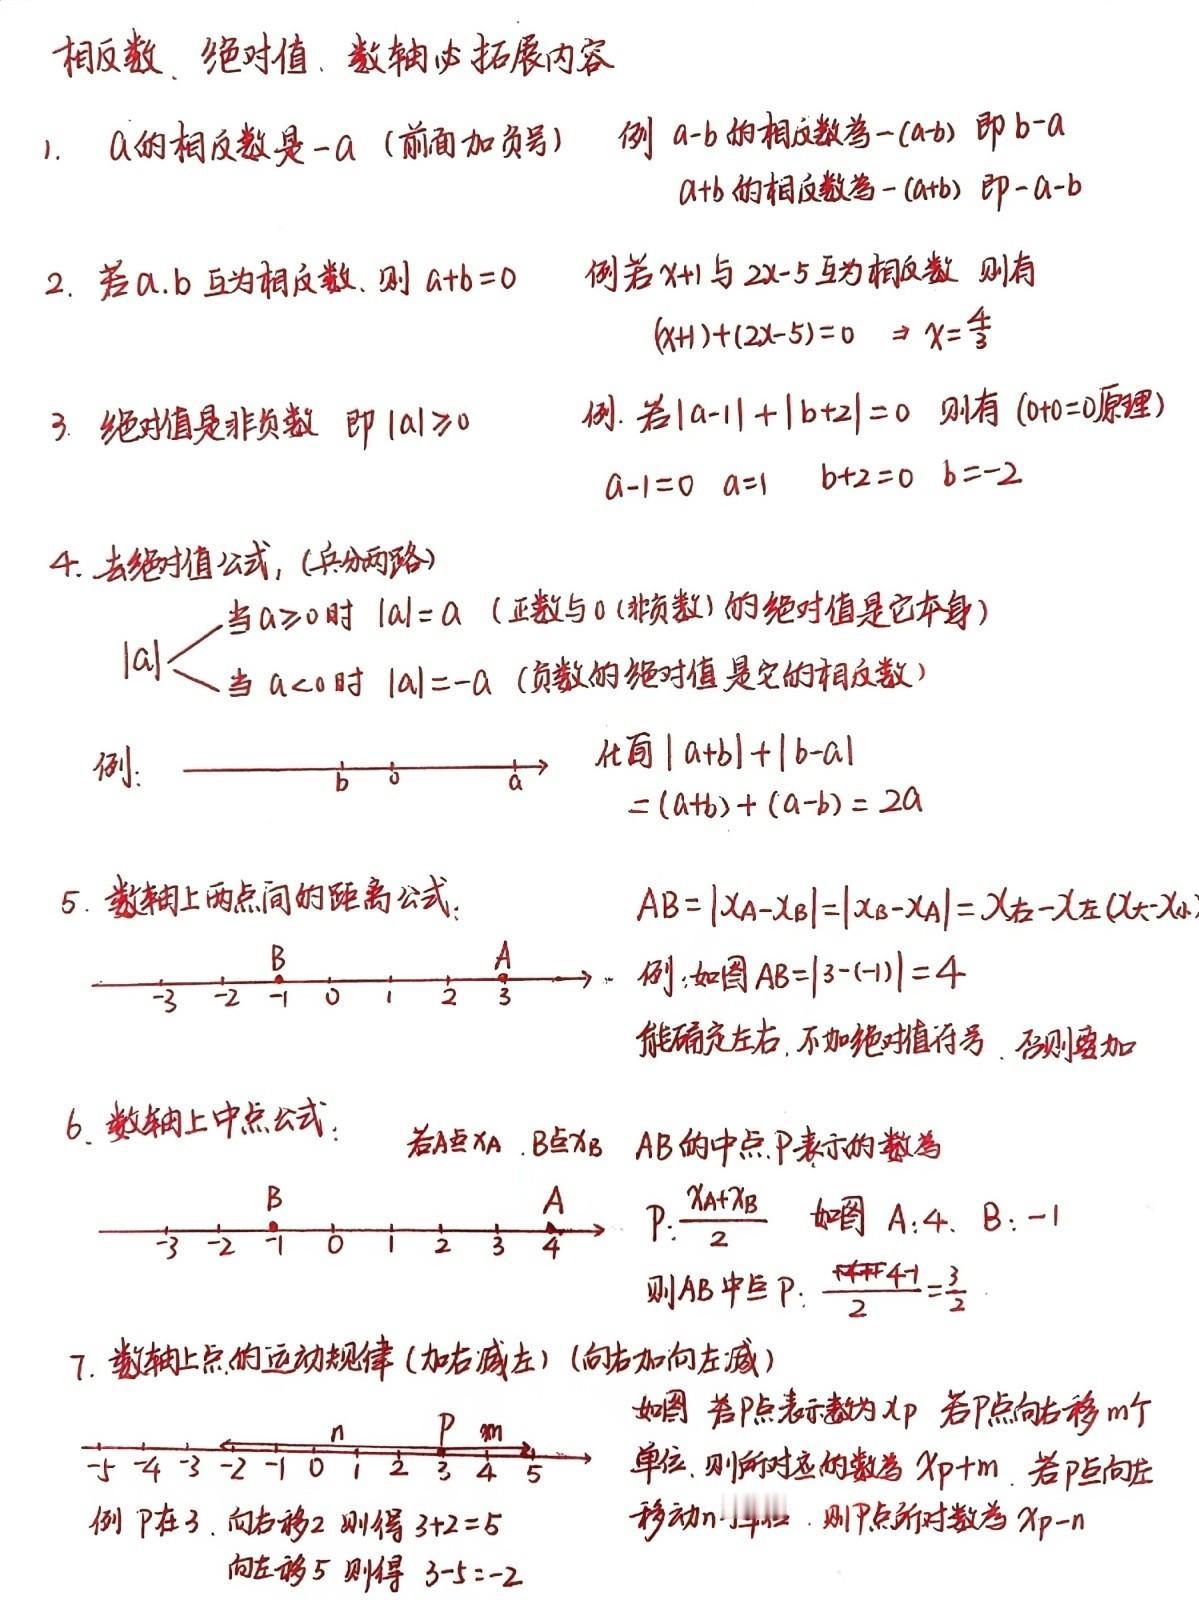 相反数、绝对值、数轴必拓展内容
1. a的相反数是-a（前面加负号） 例 a-b的相反数為-(a-b) 即b-a
a+b的相反数為-(a+b) 即-a-b
2. 若a.b互为相反数、则 a+b=0 例若x+1与2x-5互为相反数 则有
(x+1)+(2x-5)=0 ⇒ x=4/3
3. 绝对值是非负数 即|a|≥0 例.若|a-1|+|b+2|=0 则有(0+0=0原理)
a-1=0 a=1 b+2=0 b=-2
4. 去绝对值公式，(兵分两路)
当a≥0时 |a|=a （正数与0（非负数）的绝对值是它本身）
|a|
当a<0时 |a|=-a （负数的绝对值是它的相反数）
例: b 0 a 化简|a+b|+|b-a|
=(a+b)+(a-b)=2a
5. 数轴上两点间的距离公式: AB=|xA-xB|=|xB-xA|=x右-x左(x大-x小)
B A
-3 -2 -1 0 1 2 3
例:如图AB=|3-(-1)|=4
能确定左右.不加绝对值符号、否则要加
6. 数轴上中点公式: 若A点xA .B点xB AB的中点.P表示的数為
B A
-3 -2 -1 0 1 2 3 4
P: (xA+xB)/2 如图 A:4、B:-1
则AB中点P: (4-1)/2=3/2
7. 数轴上点的运动规律（加右减左）（向右加向左减）
n P m
-5 -4 -3 -2 -1 0 1 2 3 4 5
如图 若P点表示数为xp 若P点向右移m个
单位、则所对应的数為xp+m、若P点向左
移动n个单位、则P点所对数為xp-n
例 P在3、向右移2 则得 3+2=5
向左移5 则得 3-5=-2